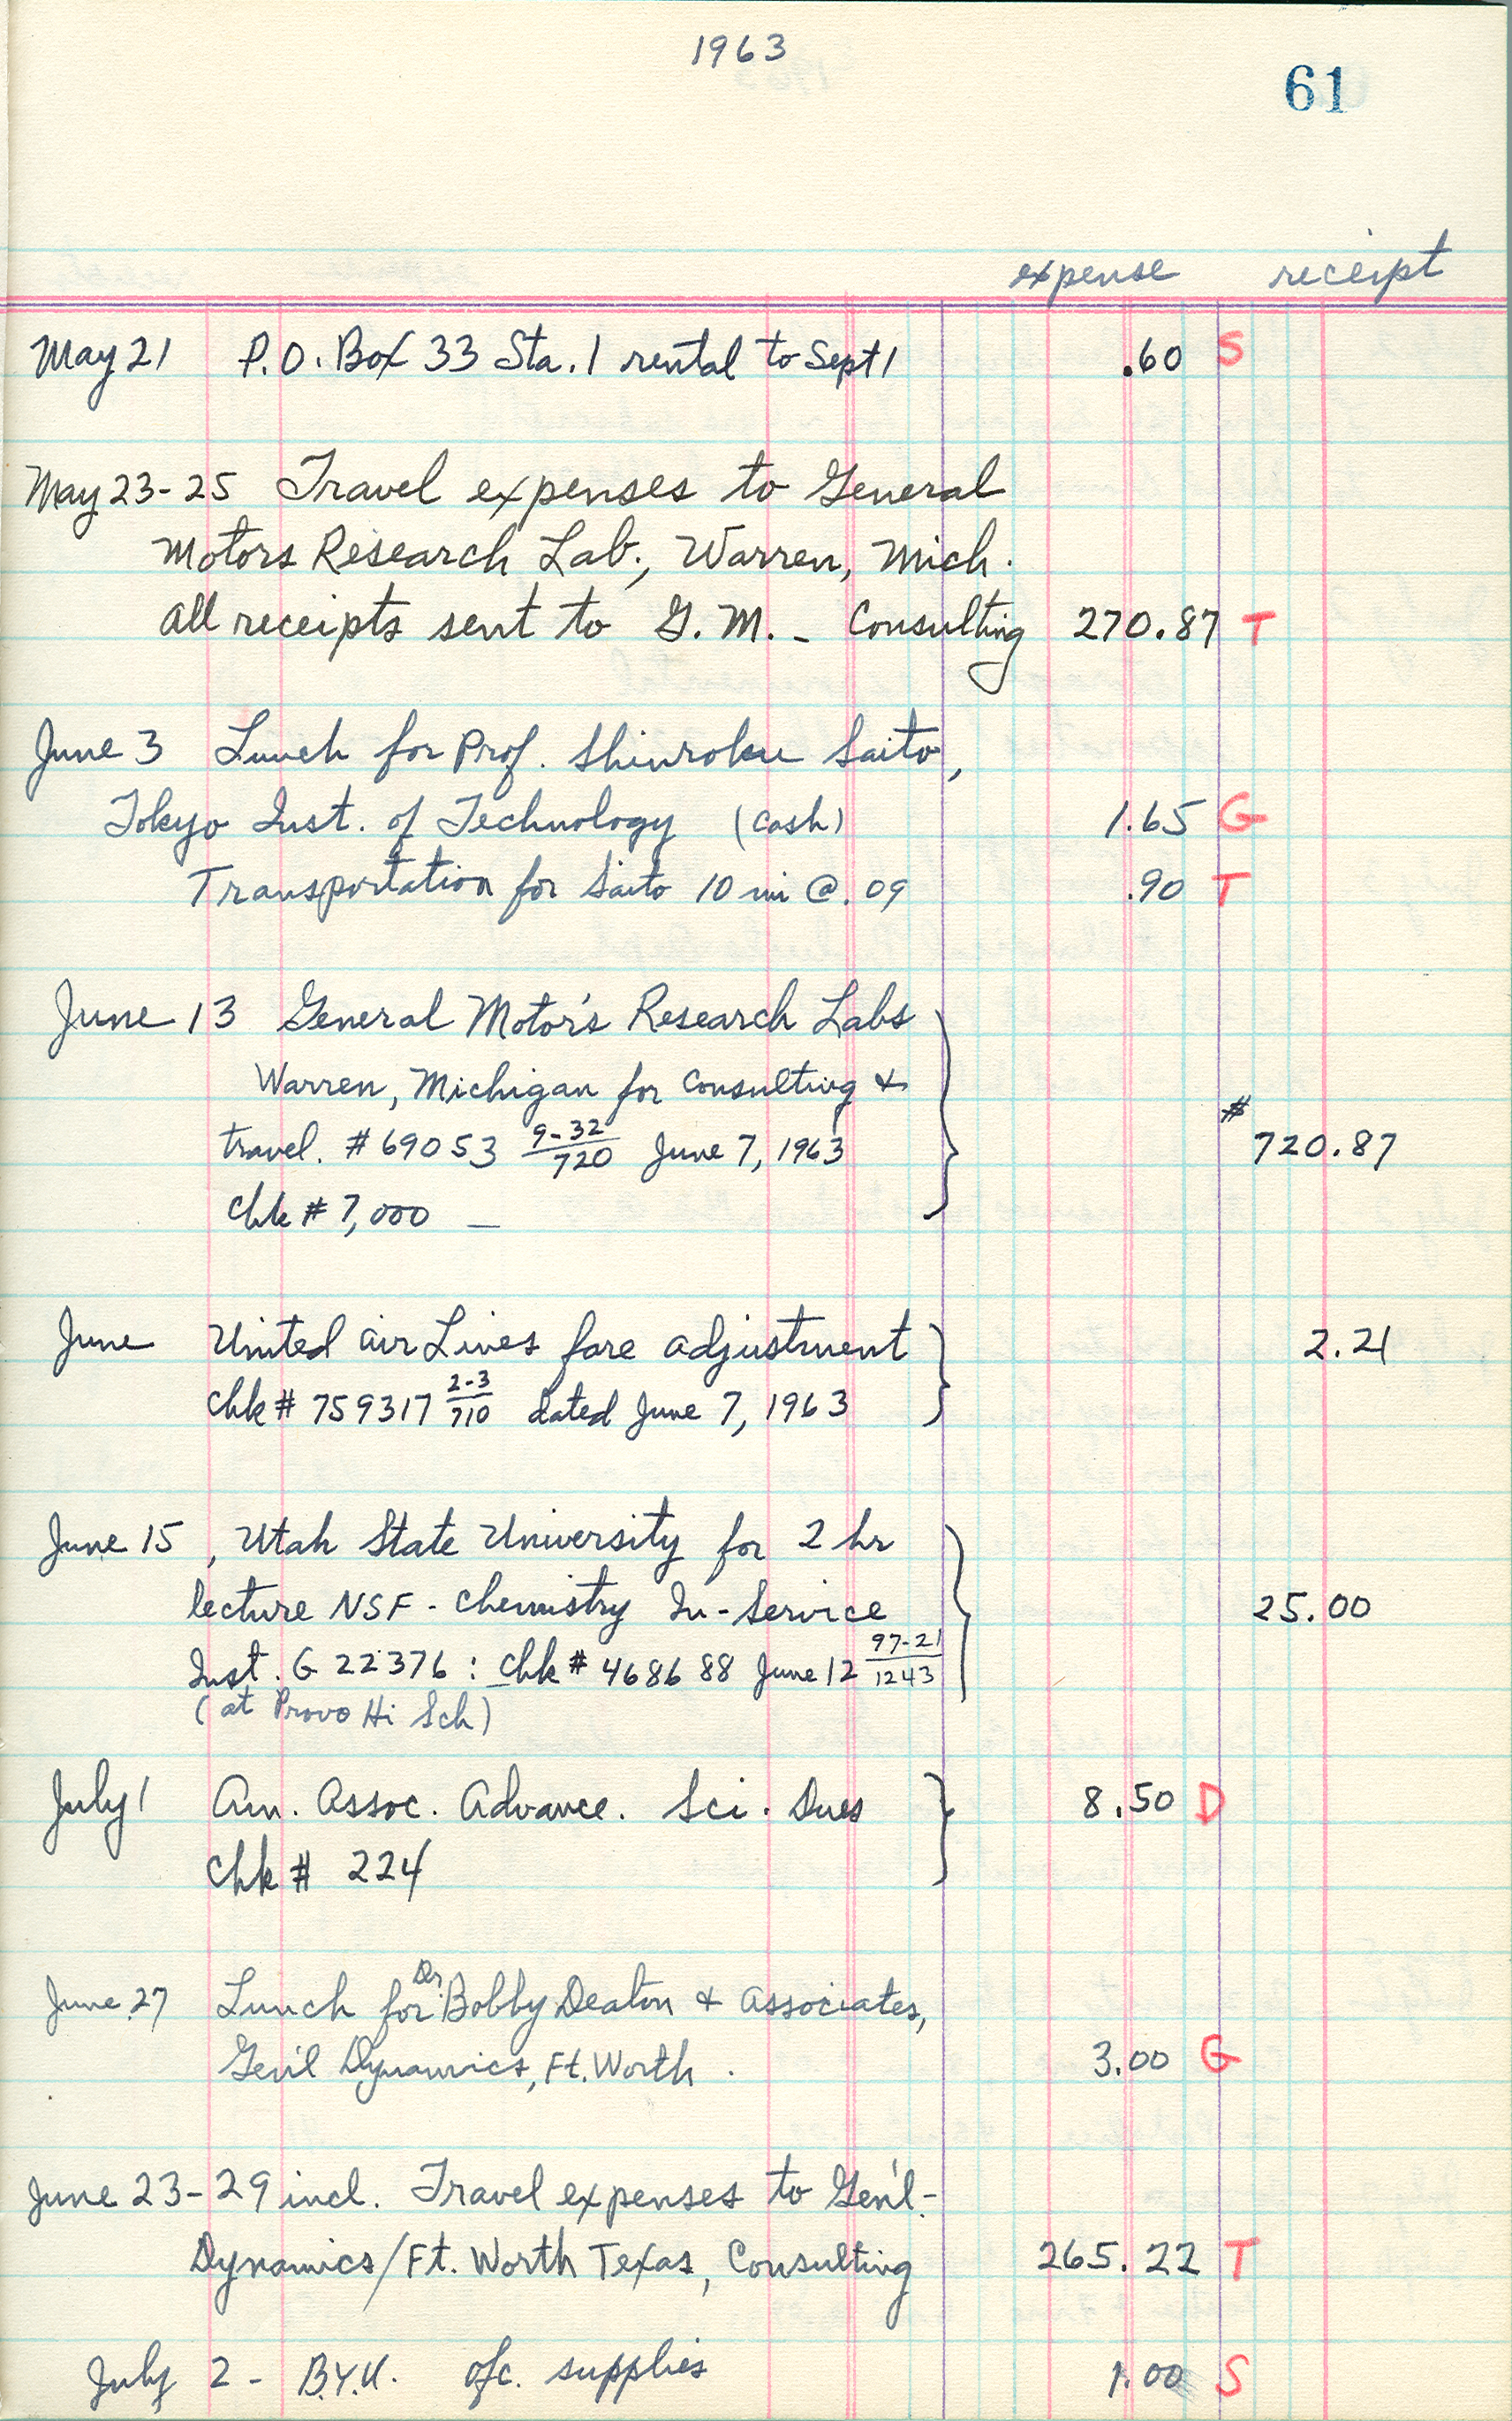 1963
61
expense receipt
May 21 P.O. Box 33 Sta. 1 rental to Sept 1 .60 S
May 23-25 Travel expenses to General
Motors Research Lab., Warren, Mich.
All receipts sent to G.M. - Consulting 270.87 T
June 3 Lunch for Prof. Shinroku Saito,
Tokyo Inst. of Technology (cash) 1.65 G
Transportation for Saito 10 mi @ .09 .90 T
June 13 General Motor's Research Labs
Warren, Michigan for Consulting &
travel. # 69053 9-32/720 June 7, 1963 # 720.87
Chk # 7,000 —
June United Air Lines fare adjustment 2.21
Chk # 759317 2-3/710 dated June 7, 1963
June 15, Utah State University for 2 hr
lecture NSF - Chemistry In-Service 25.00
Inst. G 22376 : Chk # 468688 June 12 97-21/1243
(at Provo Hi Sch)
July 1 Am. Assoc. Advance. Sci. Dues 8.50 D
Chk # 224
June 27 Lunch for Dr. Bobby Deaton & Associates,
Gen'l Dynamics, Ft. Worth. 3.00 G
June 23-29 incl. Travel expenses to Gen'l-
Dynamics/Ft. Worth Texas, Consulting 265.22 T
July 2 - B.Y.U. ofc. supplies 1.00 S